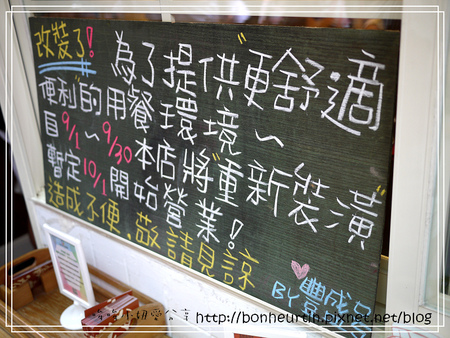 改裝了!
為了提供"更舒適
便利"的用餐環境~
自9/1~9/30本店將"重新裝潢"
暫定10/1開始營業!
造成不便,敬請見諒
BY 豐成
http://bonheurtin.pixnet.net/blog